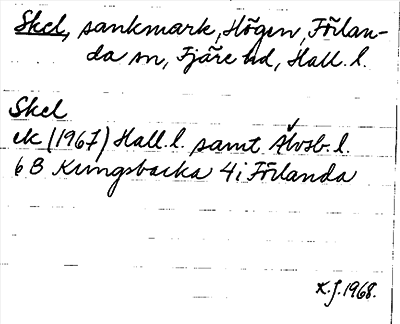 Skel, sankmark, Högen, Förlan-
da sn, Fjäre hd, Hall. l.
Skel
ek (1967) Hall. l. samt Älvsb. l.
6 B Kungsbacka 4 i Förlanda
K.J. 1968.